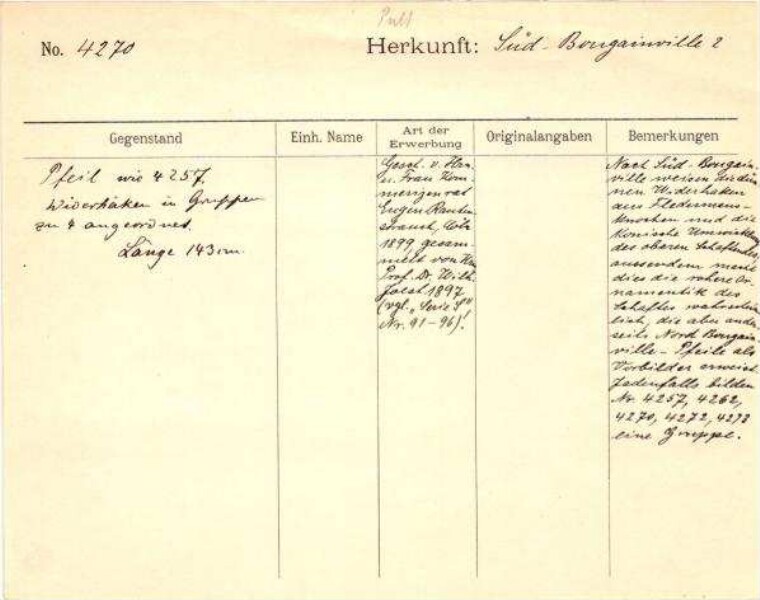 Pult
No. 4270
Herkunft: Süd-Bougainville 2
Gegenstand
Einh. Name
Art der
Erwerbung
Originalangaben
Bemerkungen
Pfeil wie 4257.
Widerhaken in Gruppen
zu 4 angeordnet.
Länge 143 cm.
Gesch. v. Hrn
u. Frau Kom-
merzienrat
Eugen Rauten-
strauch,
1899, gesam-
melt von Hn
Prof. Dr. Wilh.
Joest 1897
(vgl. "Serie S"
Nr. 91-96)!
Nach Süd-Bougain-
ville weisen die dün-
nen Widerhaken
aus Fledermaus-
knochen und die
konische Umwicklung
des oberen Schaftendes,
ausserdem macht
dies die rohere Or-
namentik des
Schaftes wahrschein-
lich, die aber ander-
seits Nord Bougain-
ville-Pfeile als
Vorbilder erweist.
Jedenfalls bilden
Nr. 4257, 4262,
4270, 4272, 4273
eine Gruppe.